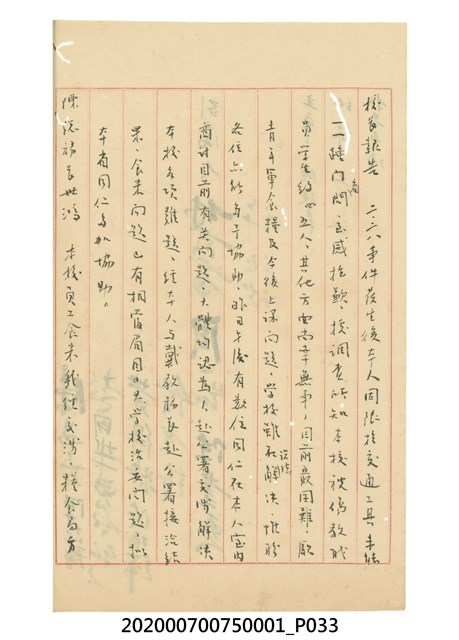 校長報告 二二八事件發生後本人因限於交通工具未能
一一踵門慰問、至感抱歉、據調查所知本校被傷教職
員學生約四五人、其他方面尚幸無事、目前最困難、厥
青年軍食糧及今後上課問題、學校雖設法解決、惟盼
各位亦能多予協助、昨日午後有數位同仁在本人室內
商討目前有關問題、大體均認為、赴公署交涉解決
本校各項難題、經本人與戴教務長赴公署接洽結
果、食米問題已有相當眉目、至學校治安問題、擬
本省同仁多加協助。
陳總務長世鴻 本校員工食米幾經交涉、糧食局方
202000700750001_P033